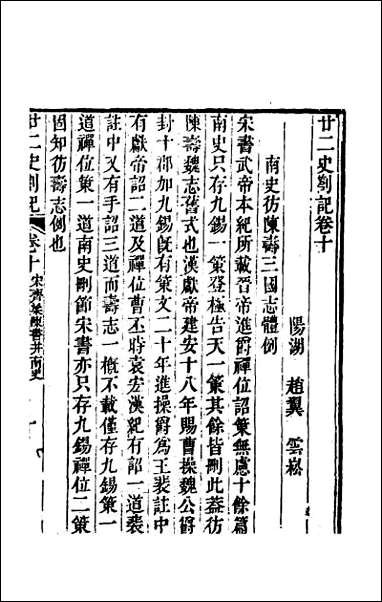 廿二史劄記卷十
陽湖 趙翼 雲崧
南史仿陳壽三國志體例
宋書武帝本紀所載晉帝進爵禪位詔策無慮十餘篇
南史只存九錫一策登極告天一策其餘皆刪此蓋仿
陳壽魏志舊式也漢獻帝建安十八年賜曹操魏公爵
封十郡加九錫旣有策文二十年進操爵爲王裴註中
有獻帝詔二道及禪位曹丕時袁宏漢紀有詔一道裴
註中又有手詔三道而壽志一槪不載僅存九錫策一
道禪位策一道南史刪節宋書亦只存九錫禪位二策
固知仿壽志例也
廿二史劄記 卷十 宋齊梁陳書并南史